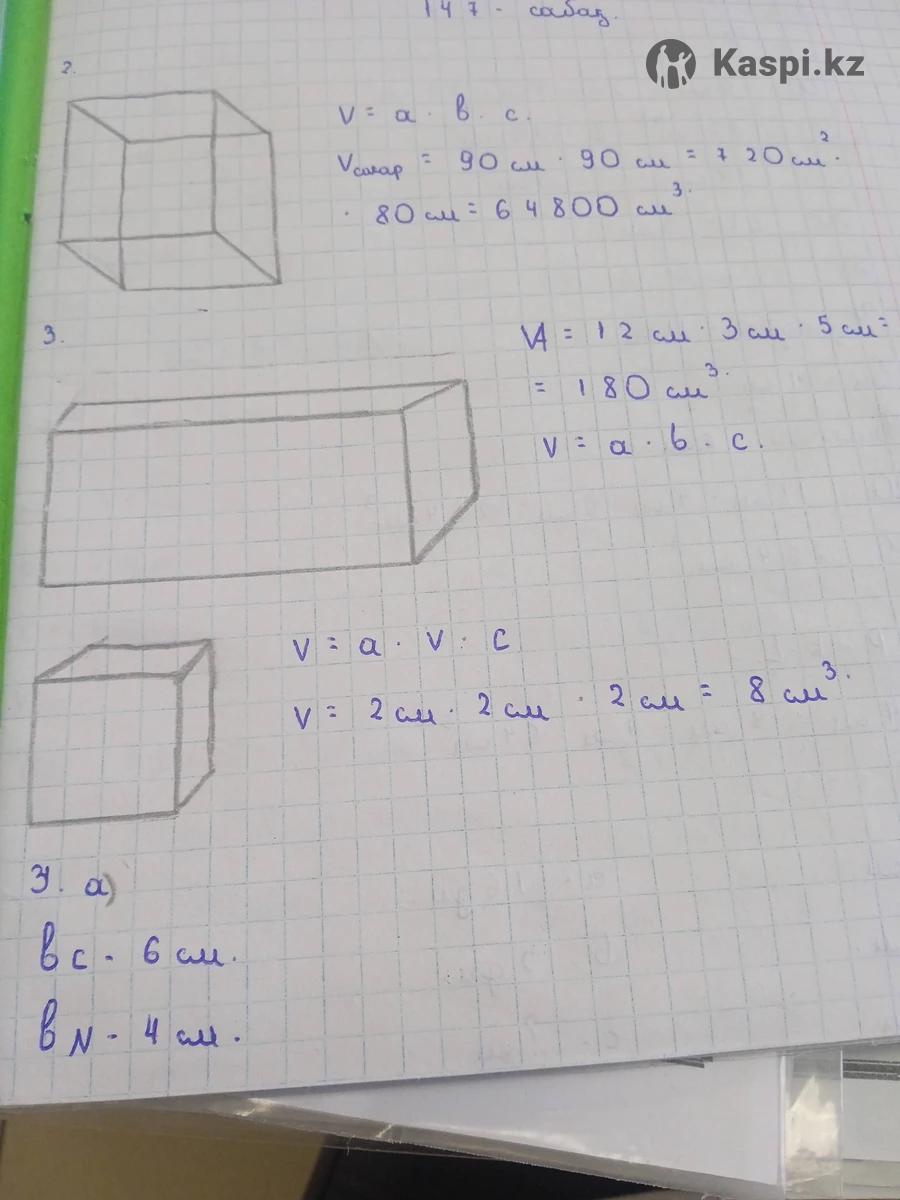 147 - сабақ.
Kaspi.kz
2.
V = a · в · c.
Vсахар = 90 см · 90 см = 720 см².
· 80 см = 64800 см³.
3.
VA = 12 см · 3 см · 5 см =
= 180 см³.
V = a · b · c.
V = a · V · c
V = 2 см · 2 см · 2 см = 8 см³.
а)
вс - 6 см.
вN - 4 см.